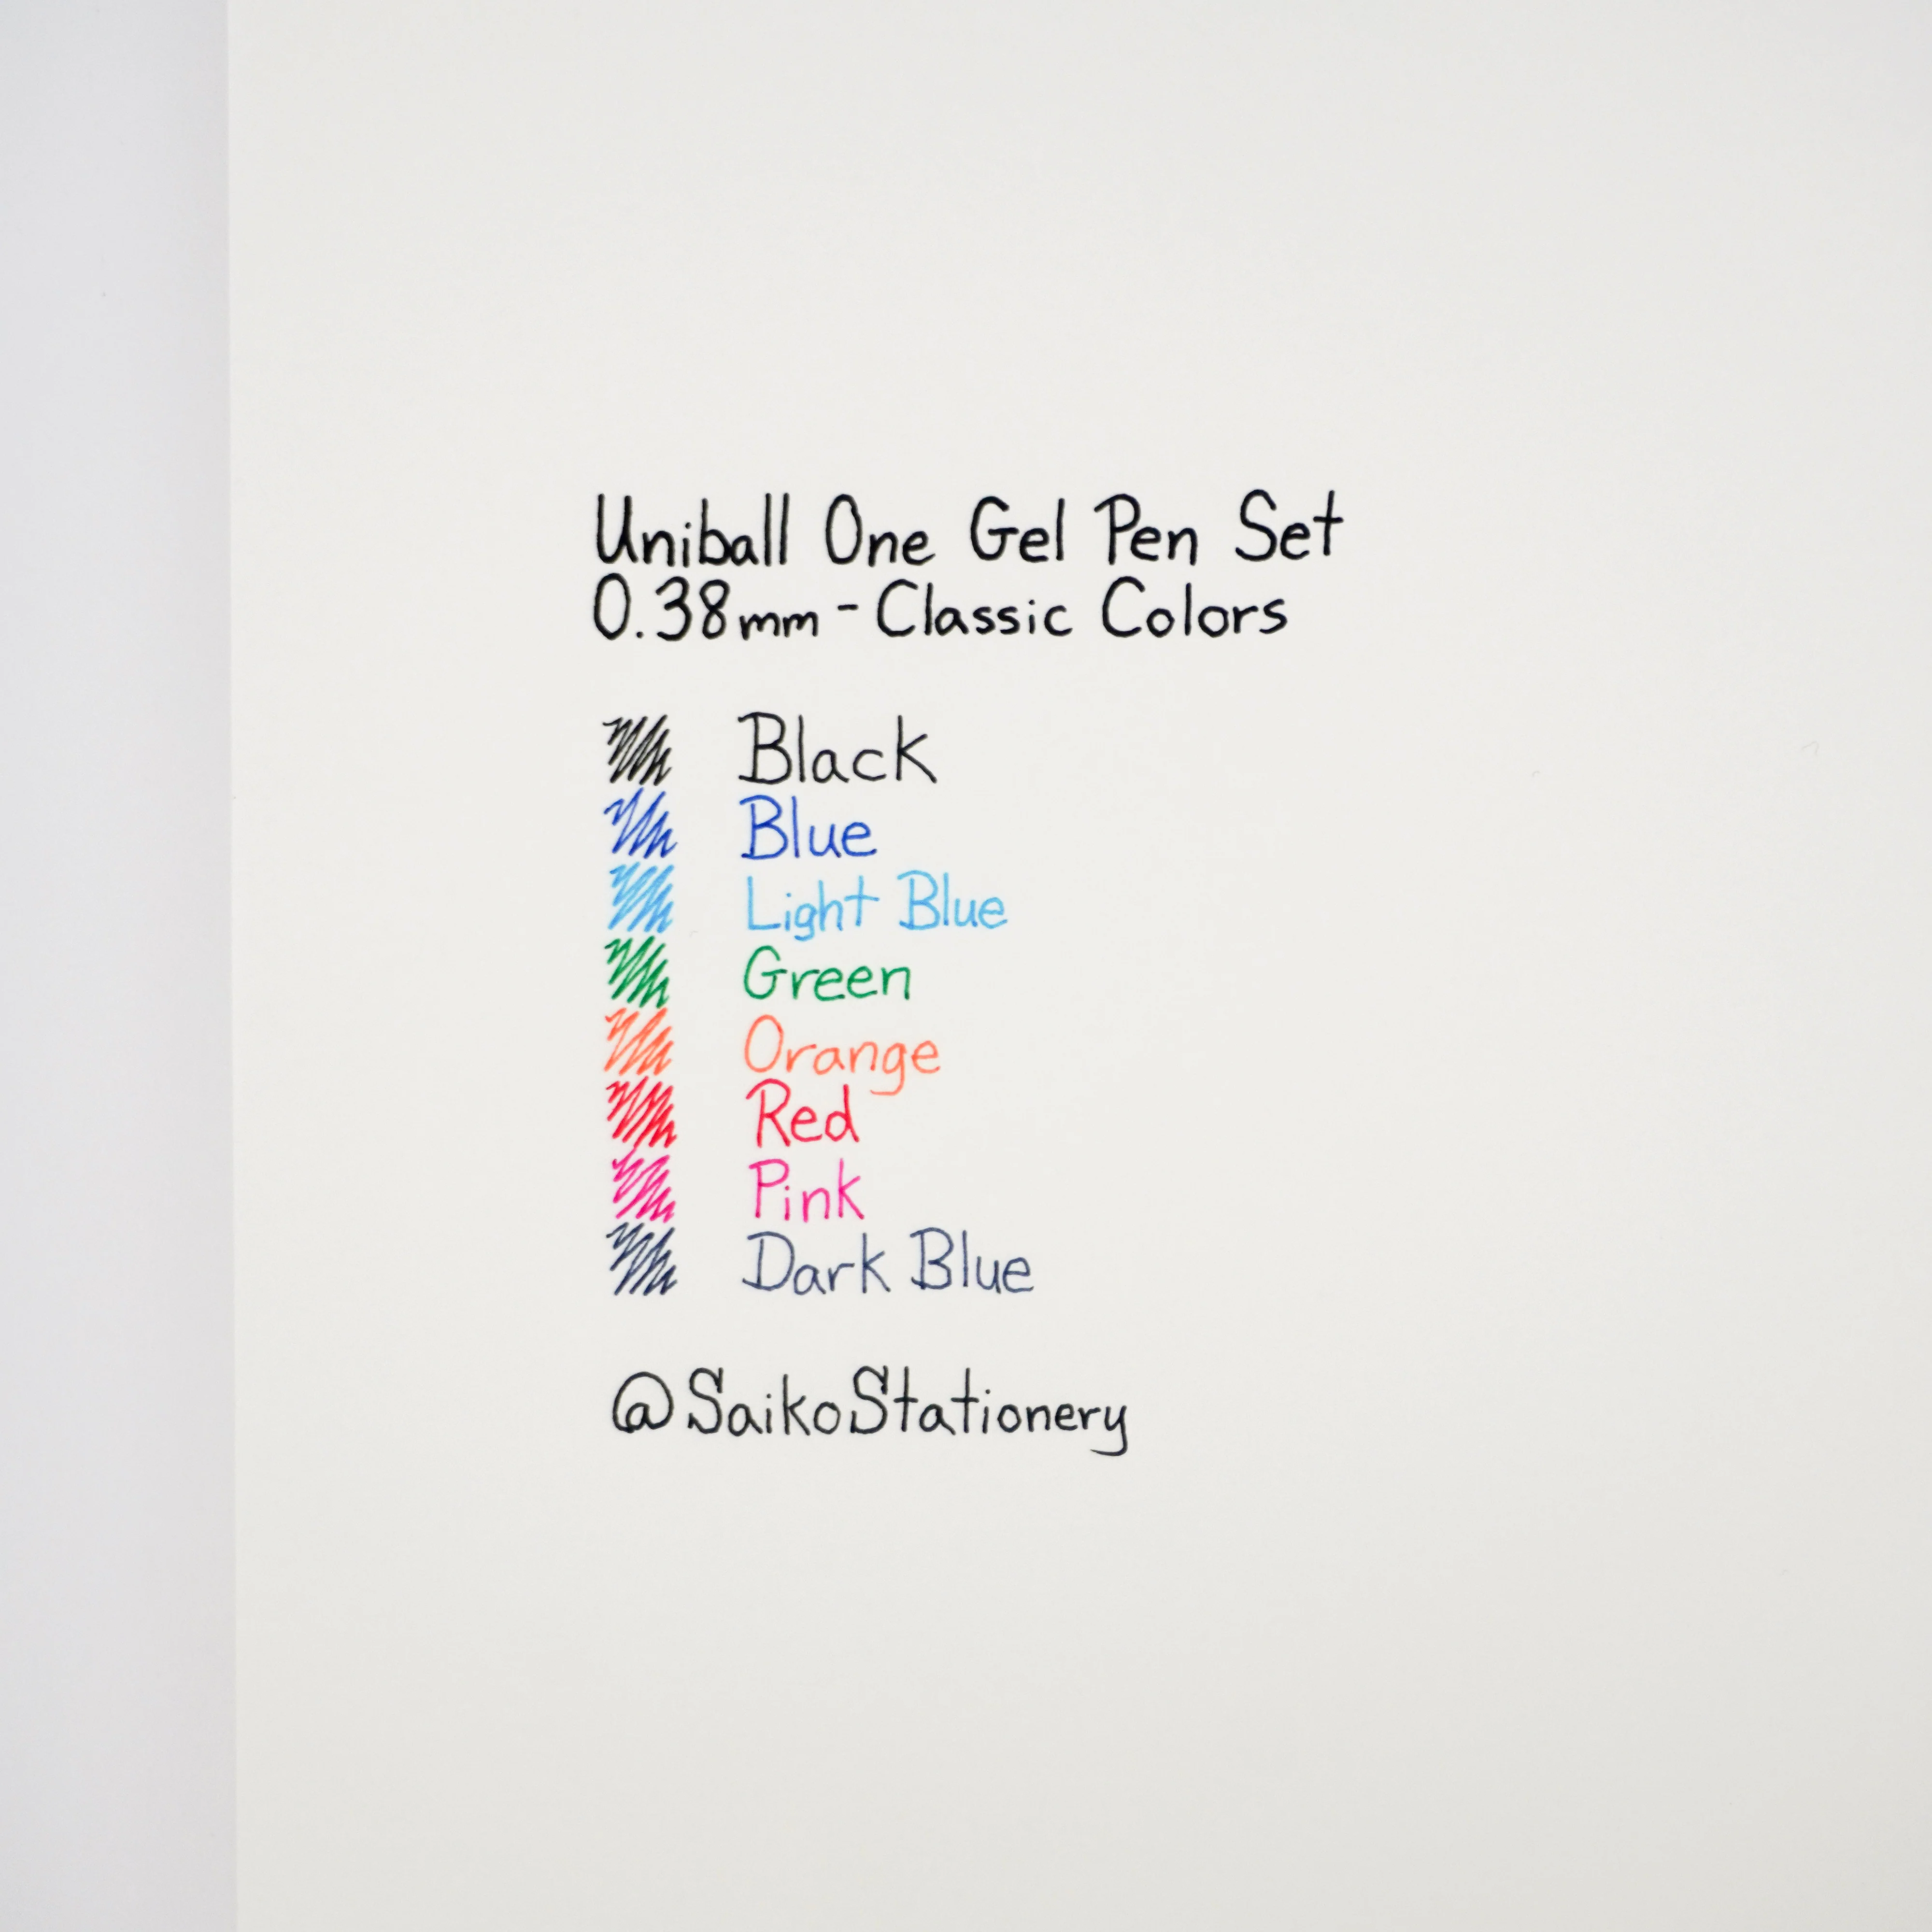 Uniball One Gel Pen Set
0.38mm - Classic Colors
Black
Blue
Light Blue
Green
Orange
Red
Pink
Dark Blue
@SaikoStationery